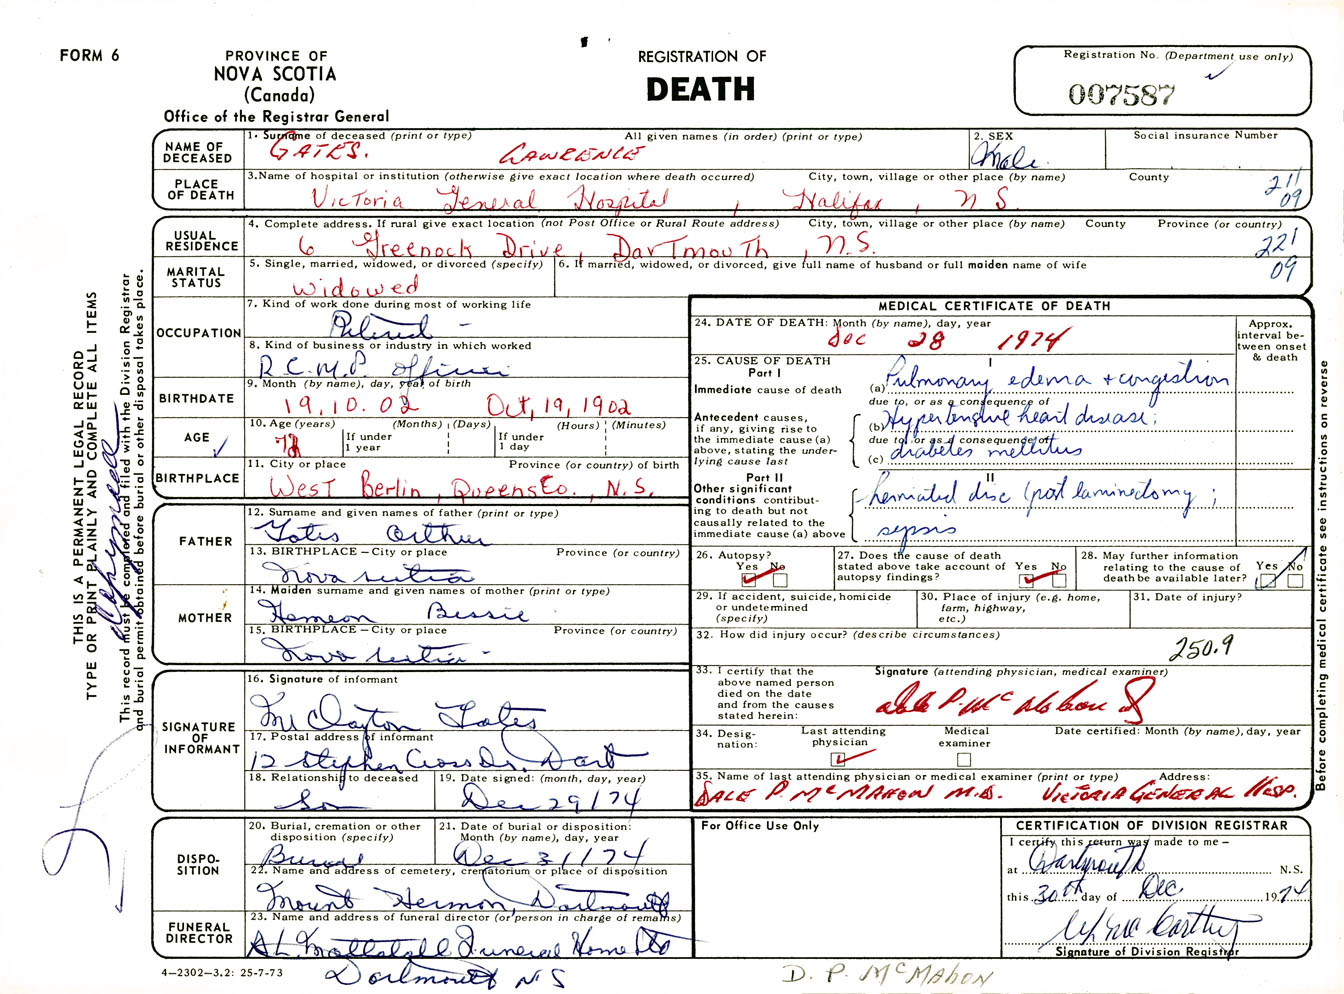 FORM 6
PROVINCE OF
NOVA SCOTIA
(Canada)
Office of the Registrar General
REGISTRATION OF
DEATH
Registration No. (Department use only)
007587
NAME OF DECEASED
1. Surname of deceased (print or type) All given names (in order) (print or type)
GATES. LAWRENCE
2. SEX
Male
Social insurance Number
PLACE OF DEATH
3. Name of hospital or institution (otherwise give exact location where death occurred) City, town, village or other place (by name) County
Victoria General Hospital, Halifax, N S.
211
09
USUAL RESIDENCE
4. Complete address. If rural give exact location (not Post Office or Rural Route address) City, town, village or other place (by name) County Province (or country)
6 Greenock Drive, Dartmouth, N.S.
221
09
MARITAL STATUS
5. Single, married, widowed, or divorced (specify)
Widowed
6. If married, widowed, or divorced, give full name of husband or full maiden name of wife
OCCUPATION
7. Kind of work done during most of working life
Retired -
8. Kind of business or industry in which worked
R.C.M.P. officer
BIRTHDATE
9. Month (by name), day, year of birth
19.10.02 Oct, 19, 1902
AGE
10. Age (years) (Months) (Days) (Hours) (Minutes)
72
If under 1 year
If under 1 day
BIRTHPLACE
11. City or place Province (or country) of birth
West Berlin, Queens Co., N.S.
FATHER
12. Surname and given names of father (print or type)
Gates Arthur
13. BIRTHPLACE – City or place Province (or country)
Nova Scotia
MOTHER
14. Maiden surname and given names of mother (print or type)
Hemeon Bessie
15. BIRTHPLACE – City or place Province (or country)
Nova Scotia -
SIGNATURE OF INFORMANT
16. Signature of informant
Clayton Gates
17. Postal address of informant
12 Stephen Cross Dr. Dart
18. Relationship to deceased
Son
19. Date signed: (month, day, year)
Dec 29/74
DISPO-
SITION
20. Burial, cremation or other disposition (specify)
Burial
21. Date of burial or disposition: Month (by name), day, year
Dec 31/74
22. Name and address of cemetery, crematorium or place of disposition
Mount Hermon, Dartmouth
FUNERAL DIRECTOR
23. Name and address of funeral director (or person in charge of remains)
A L Mattatall Funeral Home Ltd
Dartmouth N S
4–2302–3.2: 25-7-73
MEDICAL CERTIFICATE OF DEATH
24. DATE OF DEATH: Month (by name), day, year
Dec 28 1974
Approx. interval be-
tween onset & death
25. CAUSE OF DEATH
Part I
I
Immediate cause of death
(a) Pulmonary edema + congestion
due to, or as a consequence of
Antecedent causes, if any, giving rise to the immediate cause (a) above, stating the under-
lying cause last
(b) Hypertensive heart disease;
due to, or as a consequence of
(c) diabetes mellitus
Part II
II
Other significant conditions contribut-
ing to death but not causally related to the immediate cause (a) above
herniated disc (post laminectomy;
sepsis
26. Autopsy?
Yes No
27. Does the cause of death stated above take account of autopsy findings?
Yes No
28. May further information relating to the cause of death be available later?
Yes No
29. If accident, suicide, homicide or undetermined (specify)
30. Place of injury (e.g. home, farm, highway, etc.)
31. Date of injury?
32. How did injury occur? (describe circumstances)
250.9
33. I certify that the above named person died on the date and from the causes stated herein:
Signature (attending physician, medical examiner)
Dale P. McMahon
34. Desig-
nation:
Last attending physician
Medical examiner
Date certified: Month (by name), day, year
35. Name of last attending physician or medical examiner (print or type) Address:
DALE P MCMAHON M.D. VICTORIA GENERAL HOSP.
For Office Use Only
CERTIFICATION OF DIVISION REGISTRAR
I certify this return was made to me –
at Dartmouth N.S.
this 30th day of Dec 1974
Signature of Division Registrar
D. P. McMAHON
THIS IS A PERMANENT LEGAL RECORD
TYPE OR PRINT PLAINLY AND COMPLETE ALL ITEMS
This record must be completed and filed with the Division Registrar
and burial permit obtained before burial or other disposal takes place.
Before completing medical certificate see instructions on reverse